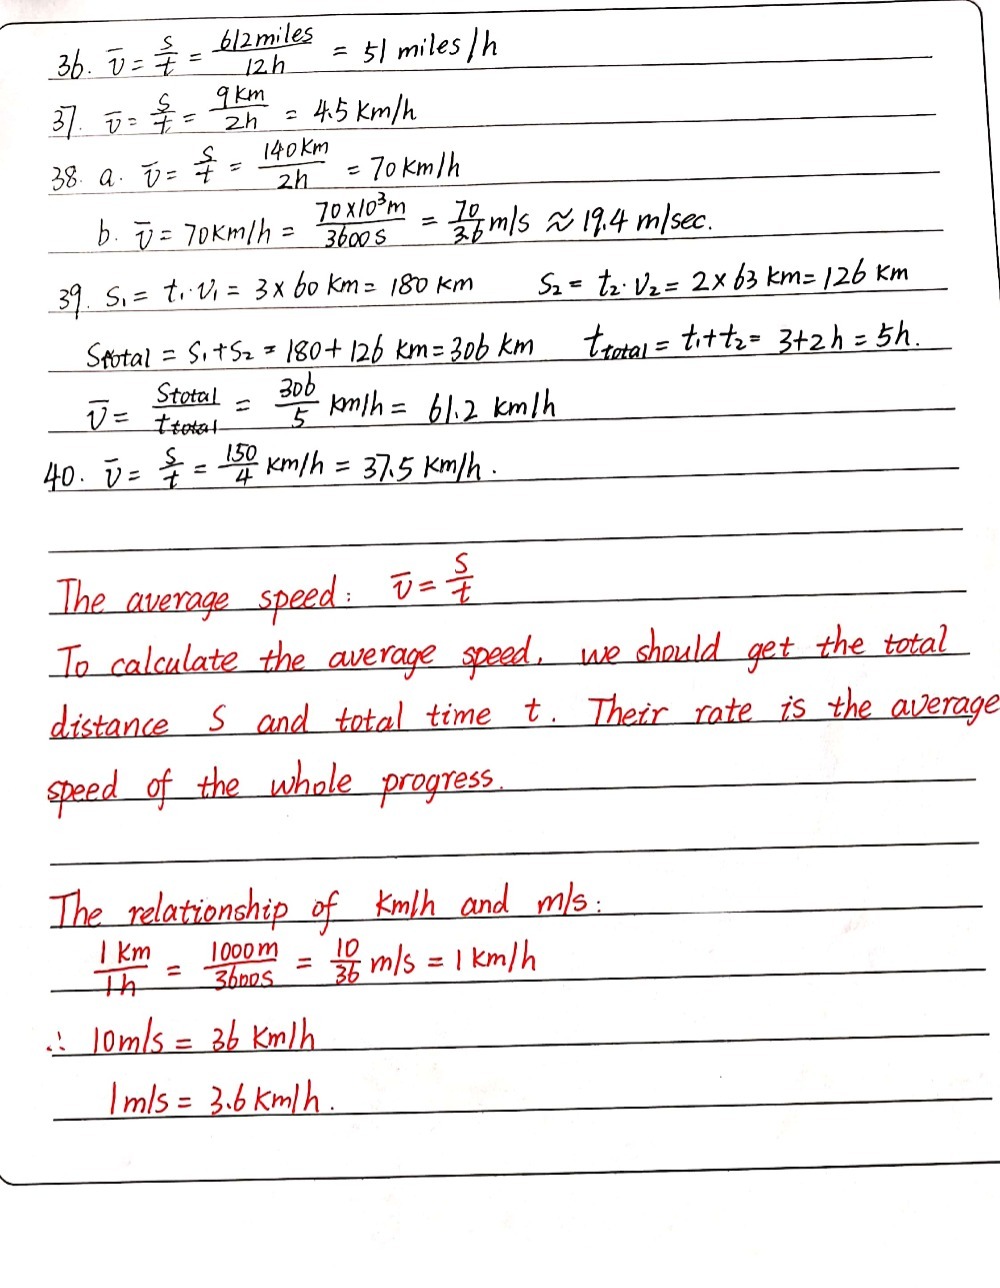 36. v̄ = s/t = 612miles/12h = 51 miles/h
37. v̄ = s/t = 9km/2h = 4.5 km/h
38. a. v̄ = s/t = 140km/2h = 70 km/h
b. v̄ = 70km/h = 70×10³m/3600s = 70/3.6 m/s ≈ 19.4 m/sec.
39. S₁ = t₁·v₁ = 3×60 km = 180 km S₂ = t₂·v₂ = 2×63 km = 126 km
Stotal = S₁+S₂ = 180+126 km = 306 km t total = t₁+t₂ = 3+2h = 5h.
v̄ = Stotal/t total = 306/5 km/h = 61.2 km/h
40. v̄ = s/t = 150/4 km/h = 37.5 km/h.
The average speed: v̄ = s/t
To calculate the average speed, we should get the total
distance S and total time t. Their rate is the average
speed of the whole progress.
The relationship of km/h and m/s:
1 km/1h = 1000m/3600s = 10/36 m/s = 1 km/h
∴ 10m/s = 36 km/h
1m/s = 3.6 km/h.